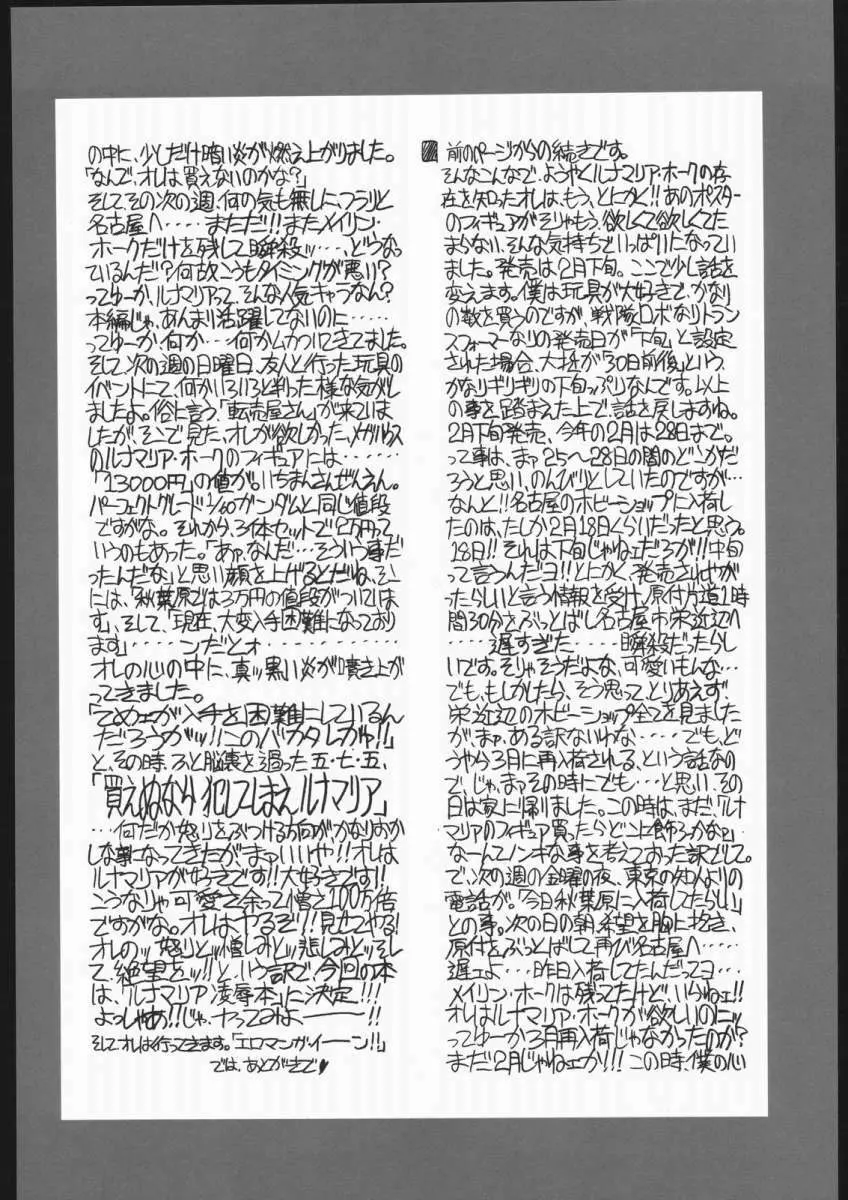 前のページからの続きです。
そんなこんなで、ようやくルナマリア・ホークの存
在を知ったオレは、もう、とにかく!!あのポスター
のフィギュアがそりゃもう、欲しくて欲しくてた
まらない、そんな気持ちでいっぱいになってい
ました。発売は2月下旬。ここで少し話を
変えます。僕は玩具が大好きで、かなり
の数を買うのですが、戦隊ロボなりトラン
スフォーマーなりの発売日が「下旬」と設定
された場合、大抵が「30日前後」という、
かなりギリギリの下旬っぷりなんです。以上
の事を踏まえた上で話を戻しますね。
2月下旬発売、今年の2月は28日まで。
って事は、まァ25〜28日の間のどこかだ
ろうと思い、のんびりとしていたのですが…
なんと!!名古屋のホビーショップに入荷し
たのは、たしか2月18日くらいだったと思う。
18日!!それは下旬じゃねェだろが!!中旬
って言うんだヨ!!とにかく、発売されやが
ったらしいと言う情報を受け、原付片道1時
間30分をぶっとばし名古屋市栄近辺へ
……遅すぎた……瞬殺だったらし
いです。そりゃそうだよな、可愛いもんな…
でも、もしかしたら、そう思って、とりあえず
栄近辺のホビーショップ全てを見ました
が、まァ、ある訳ないわな……でも、ど
うやら3月に再入荷される、という話なの
で、じゃ、まァその時にでも…と思い、その
日は家に帰りました。この時は、まだ、「ルナ
マリアのフィギュア買ったらどこに飾ろかなァ」
なーんてノンキな事を考えておった訳でして。
で、次の週の金曜の夜、東京の知人よりの
電話が。「今日秋葉原に入荷したらしい」
との事。次の日の朝、希望を胸に抱き、
原付をぶっとばして再び名古屋へ……
遅ェよ…昨日入荷してたんだってヨ…
メイリン・ホークは残ってたけど、いらねェ!!
オレはルナマリア・ホークが欲しいのにッ
ってゆーか3月再入荷じゃなかったのか?
まだ2月じゃねェか!!!この時、僕の心
の中に、少しだけ暗い炎が燃え上がりました。
「なんで、オレは買えないのかな?」
そしてその次の週、何の気も無しに、フラリと
名古屋へ……まただ!!またメイリン・
ホークだけを残して瞬殺ッ…、どうなっ
ているんだ!?何故こうもタイミングが悪い?
ってゆーか、ルナマリアって、そんな人気キャラなん?
本編じゃ、あんまり活躍してないのに……
ってゆーか何か…何かムカついてきてました。
そして、次の週の日曜日、友人と行った玩具の
イベントにて、何かいろいろと判った様な気がし
ましたよ。俗に言う「転売屋さん」が来ていま
したが、そこで見た、オレが欲しかった、メガハウス
のルナマリア・ホークのフィギュアには………
「13000円」の値が。いちまんさんぜんえん。
パーフェクトグレード1/60ガンダムと同じ値段
ですがな。それから、3体セットで2万円って
いうのもあった。「あァ、なんだ…そういう事だ
ったんだな」と思い顔を上げるとだね、そこ
には、「秋葉原では3万円の値段がついていま
す」、そして、「現在、大変入手困難になっており
ます」……ンだとォ…………
オレの心の中に、真ッ黒い炎が噴き上が
ってきました。
「てめェが入手を困難にしているん
だろうがッ!!このバカタレがァ!!」
と、その時、ふと脳裏を過った五・七・五、
「買えぬなら 犯してしまえ ルナマリア」
…何だか怒りをぶつける方向がかなりおか
しな事になってきたが、まァいいや!!オレは
ルナマリアが好きです!!大好きです!!
こうなりゃ可愛さ余って憎さ100万倍
ですがな。オレは、やるぞ!!見せてやる!
オレのッ怒りとッ憎しみとッ悲しみとッそし
て、絶望をッ!!と、いう訳で、今回の本
は、「ルナマリア凌辱本」に決定!!!
よっしゃあ!!!じゃ、ヤってみよーーー!!
そしてオレは行ってきます。「エロマンガイーーン!!」
では、あとがきで♥